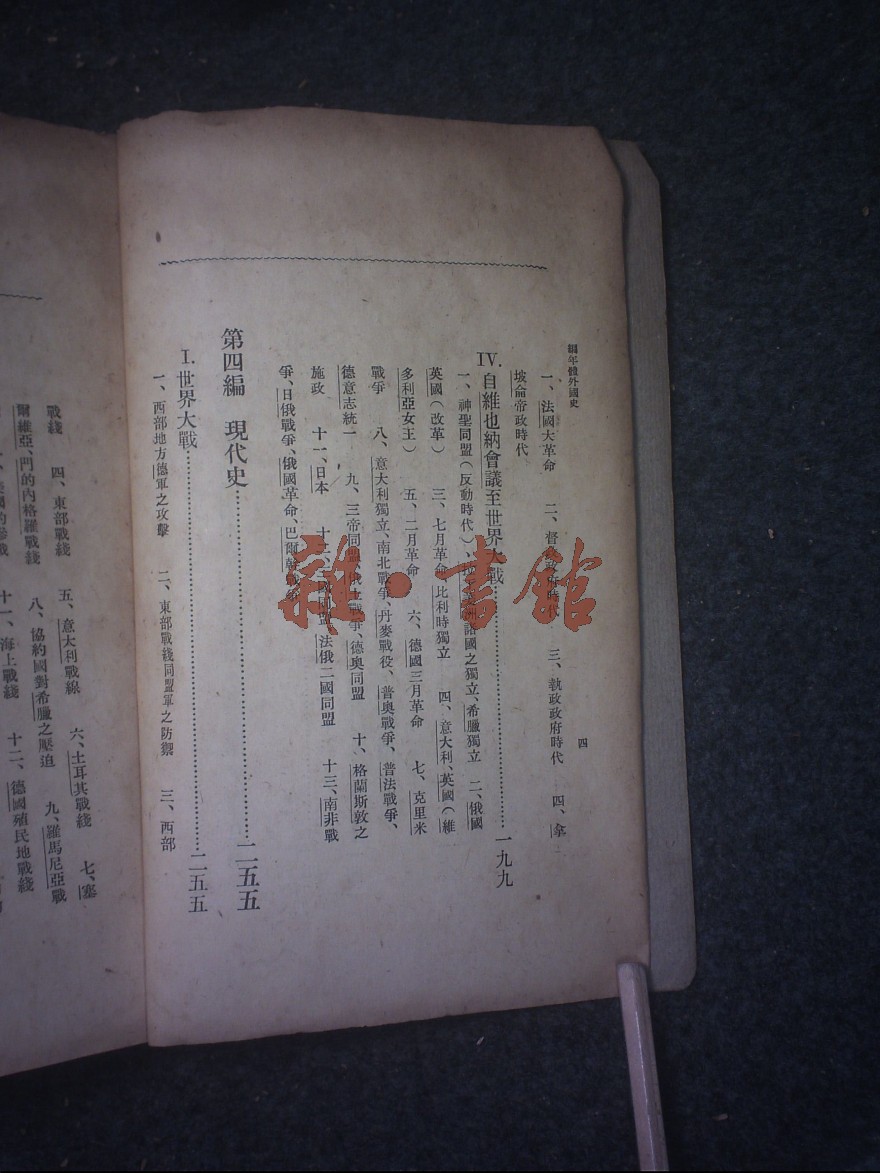 編年體外國史
四
一、法國大革命 二、督政政府時代 三、執政政府時代 四、拿
坡侖帝政時代
IV. 自維也納會議至世界大戰……一九九
一、神聖同盟(反動時代)、美洲諸國之獨立、希臘獨立 二、俄國
英國(改革) 三、七月革命比利時獨立 四、意大利、英國(維
多利亞女王) 五、二月革命 六、德國三月革命 七、克里米
戰爭 八、意大利獨立、南北戰爭、丹麥戰役、普奧戰爭、普法戰爭、
德意志統一 九、三帝同盟、俄土戰爭、德奧同盟 十、格蘭斯敦之
施政 十一、日本 十二、三國同盟、法俄二國同盟 十三、南非戰
爭、日俄戰爭、俄國革命、巴爾幹戰爭
第四編 現代史……二五五
I. 世界大戰……二五五
一、西部地方德軍之攻擊 二、東部戰綫同盟軍之防禦 三、西部
戰綫 四、東部戰綫 五、意大利戰線 六、土耳其戰綫 七、塞
爾維亞、門的內格羅戰綫 八、協約國對希臘之壓迫 九、羅馬尼亞戰
十一、海上戰綫 十二、德國殖民地戰綫
雜·書館